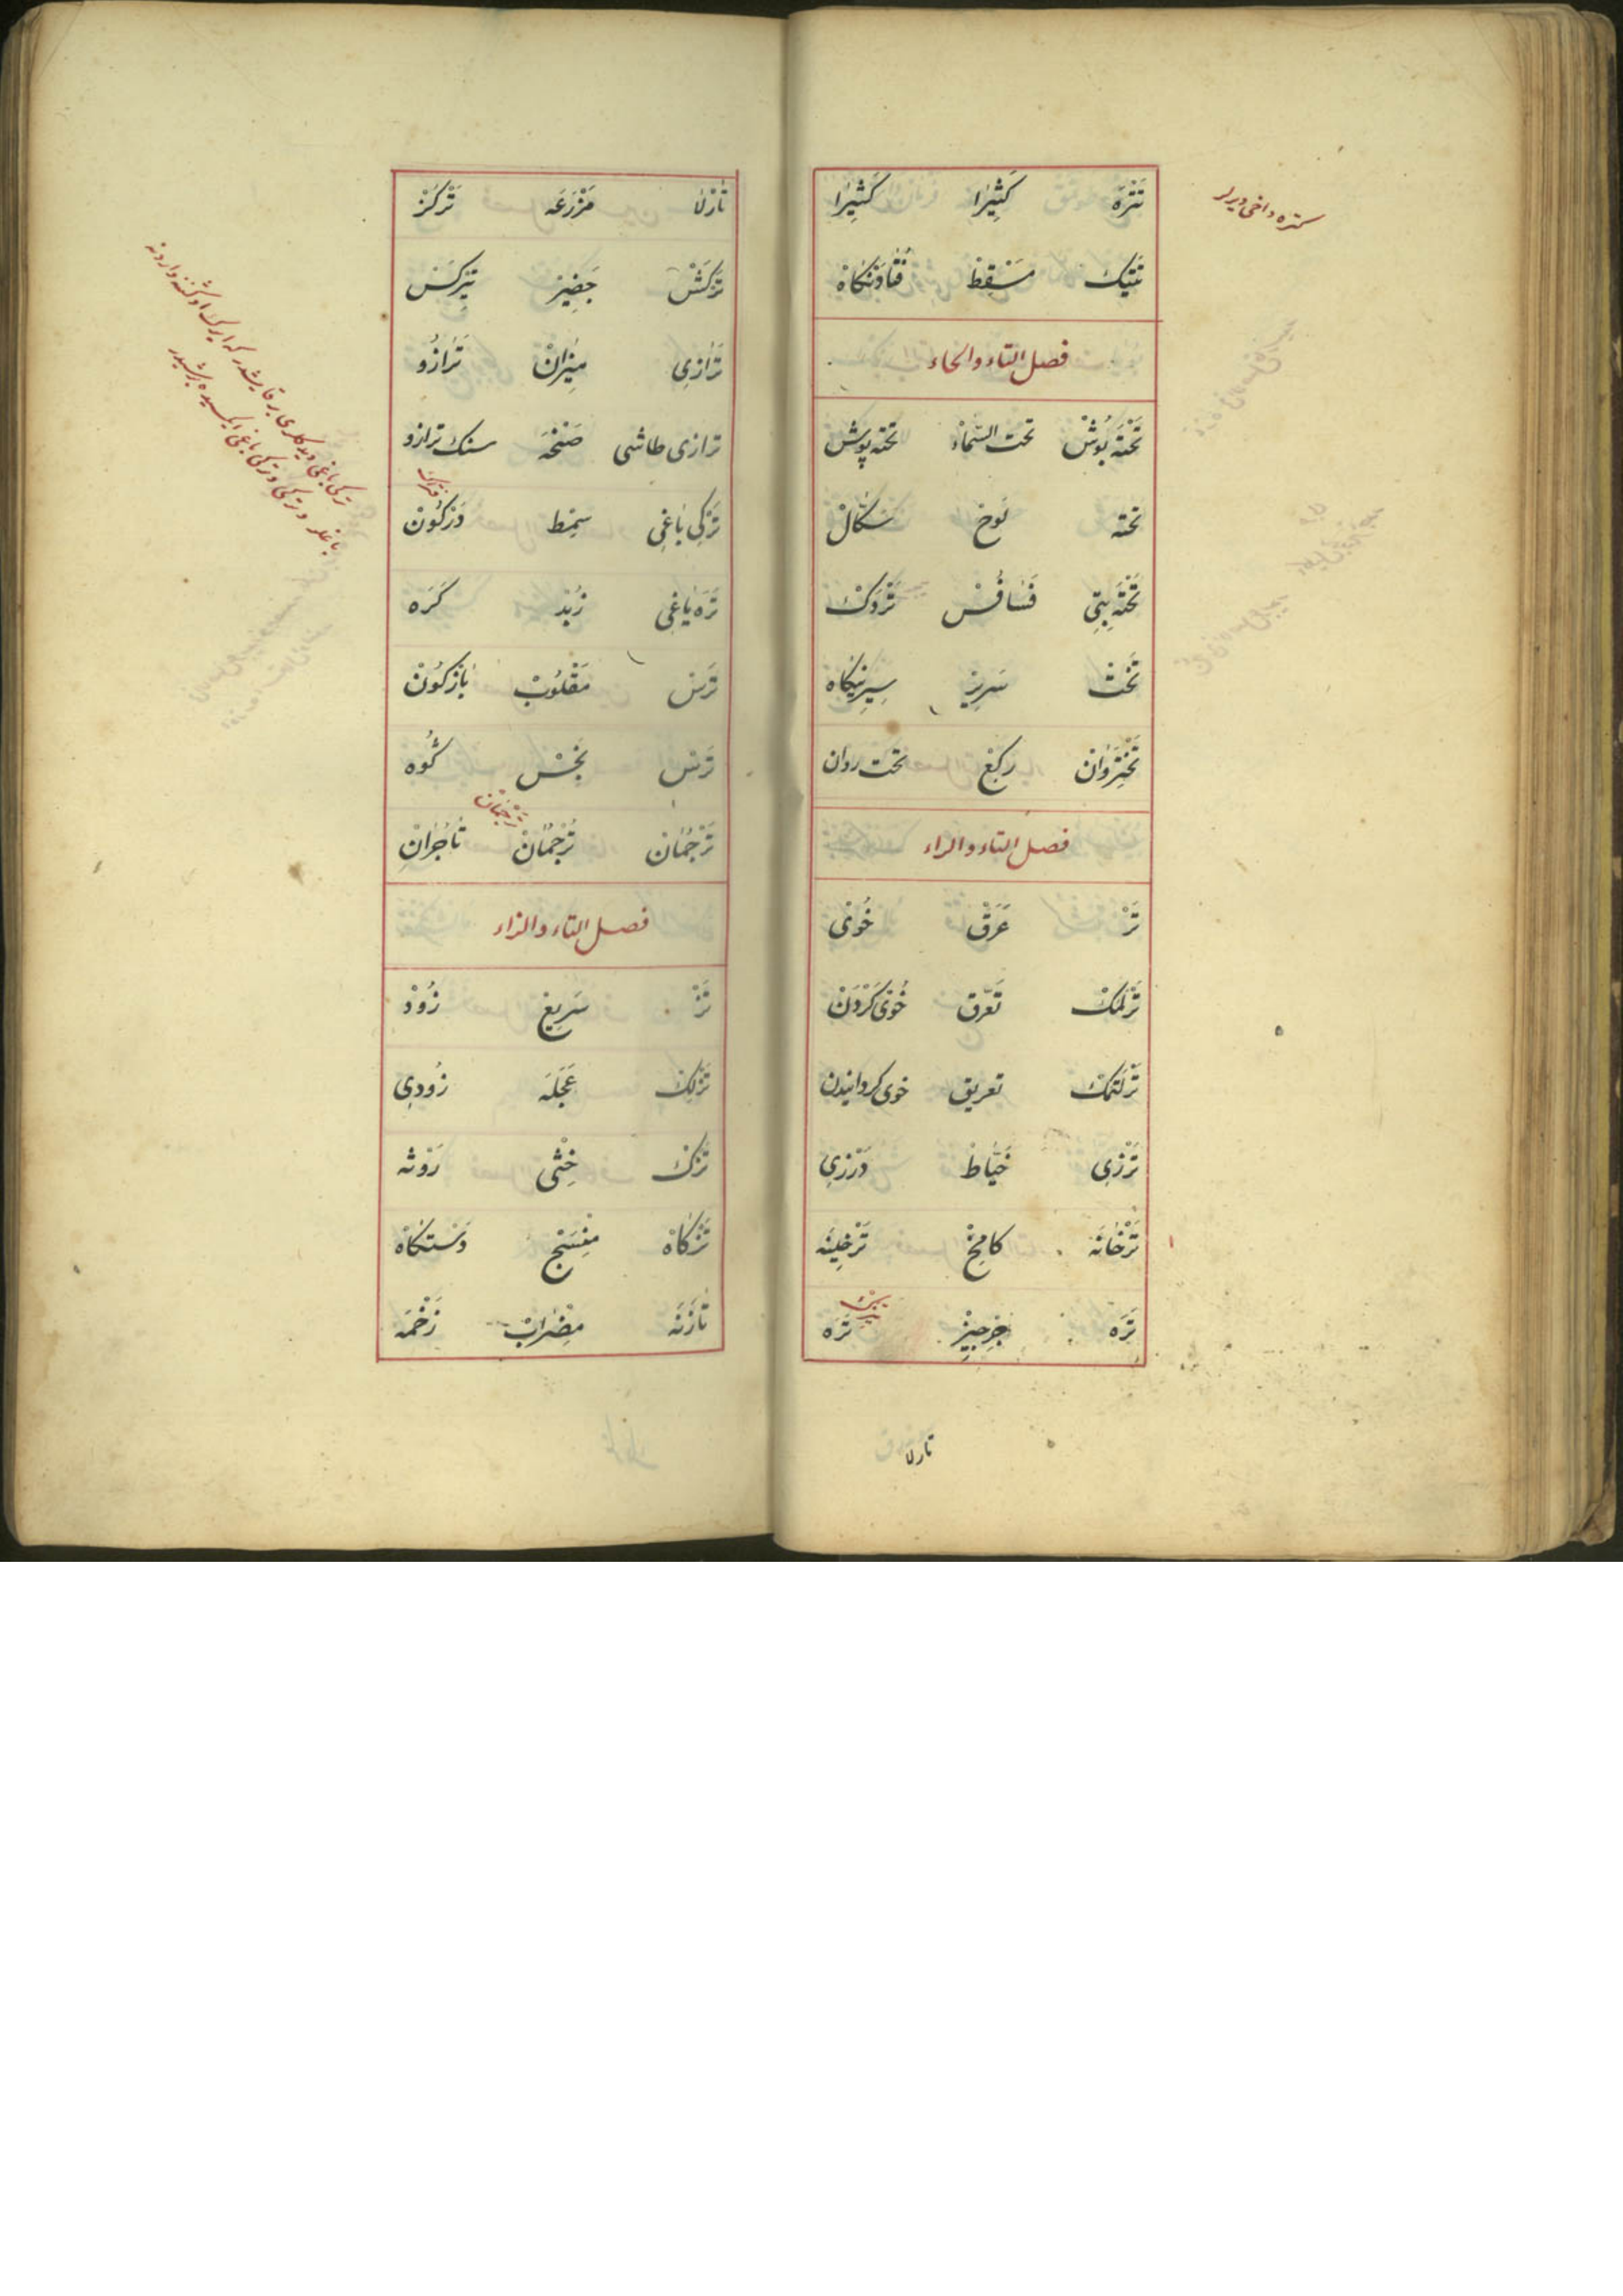 تَتْرَه كَثِيرَا كَثِيرَا
كتره داخی دیرلر
تَتِيك مَسْقِط فُتَادَنْكَاهْ
فصل التاء والخاء
تَخْتَه بُوشْ تحت السَّمَاء تخته پوش
تخته لَوح سكَالْ
تَخْتَه بِتِي فَسَافُسْ تَرْدَكْ
تَخْتْ سَرِير
تَخْتِرَوَانْ تخت روان
فصل التاء والراء
تَرْ عَرَقْ خُوْى
تَرْلَمَكْ تَعَرّق خُوْى كَرْدَنْ
تَرْلَتمَكْ تعريق خوى كردانيدن
تَرْزِي خَيَّاطْ دَرْزِي
تَرْخَانَه كَامِخْ تَرْخِينَه
تَرَه جِرْجِيرْ تَرَه
تارلا
تَارْلَا مَزْرَعَه تَرْكَزْ
تَرْكَشْ جَفِيرْ تِيرْكَشْ
تَرَازِي مِيزَانْ تَرَازُو
ترازى طاشى صَنْجَه سنك ترازو
تَرْكِي بَاغِي سِمْط دَرْكُونْ
تَرَه يَاغِي زُبْد كَرَه
تَرْس مَقْلُوبْ بَازْكُونْ
تَرْس نَجِسْ كُوه
تَرْجُمَانْ تُرْجُمَانْ تَاجُرَانْ
تَرْجَمَانْ
فصل التاء والزاء
تَزْ سَرِيعْ زُودْ
تَزْلِكْ عَجَلَه زُودِي
تَزَكْ خِثْى رَوْثه
تَزْكَاهْ مِنْسَجْ دَسْتكَاهْ
تَازَنَه مِضْرَابْ زَخْمَه